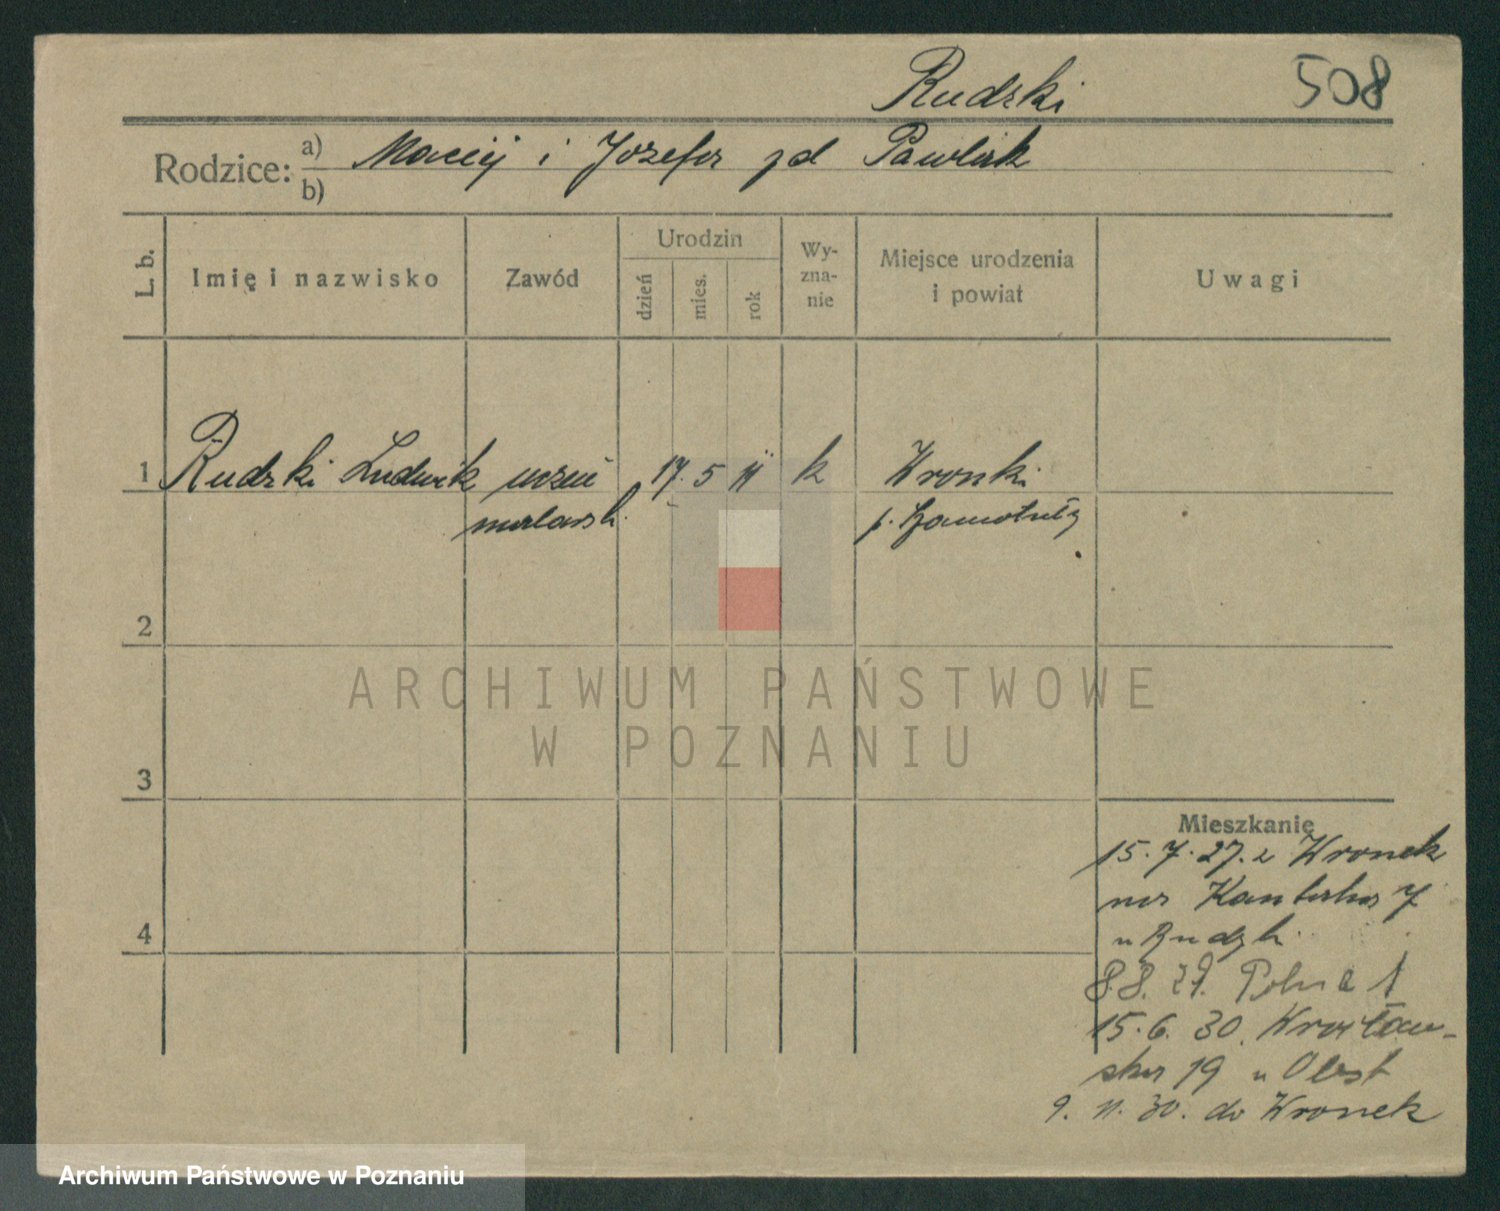 Rudzki 508
Rodzice: a) Maciej i Józefa zd Pawlak
b)
L. b.
Imię i nazwisko
Zawód
Urodzin
dzień
mies.
rok
Wy-
zna-
nie
Miejsce urodzenia
i powiat
Uwagi
1 Rudzki Ludwik uczeń 17. 5 11 k Wronki
malarsk. p. Szamotuły
2
3
4
Mieszkanie
15. 7. 27. z Wronek
na Kantaka 7
u
8.8. 29. Polna 1
15. 6. 30. Wrocław-
ska 19 u
9. 11. 30. do Wronek
ARCHIWUM PAŃSTWOWE
W POZNANIU
Archiwum Państwowe w Poznaniu